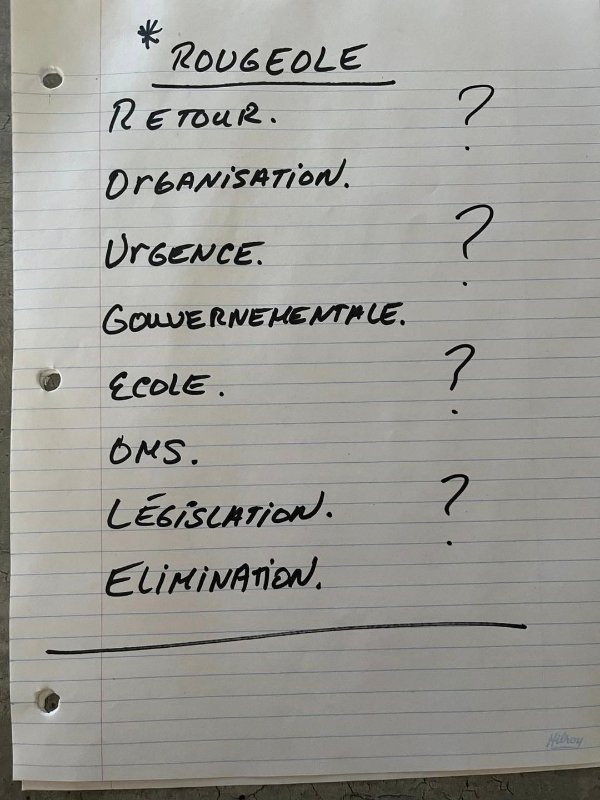 * ROUGEOLE
RETOUR. ?
ORGANISATION.
URGENCE. ?
GOUVERNEMENTALE.
ECOLE. ?
OMS.
LÉGISLATION. ?
ELIMINATION.
Hilroy